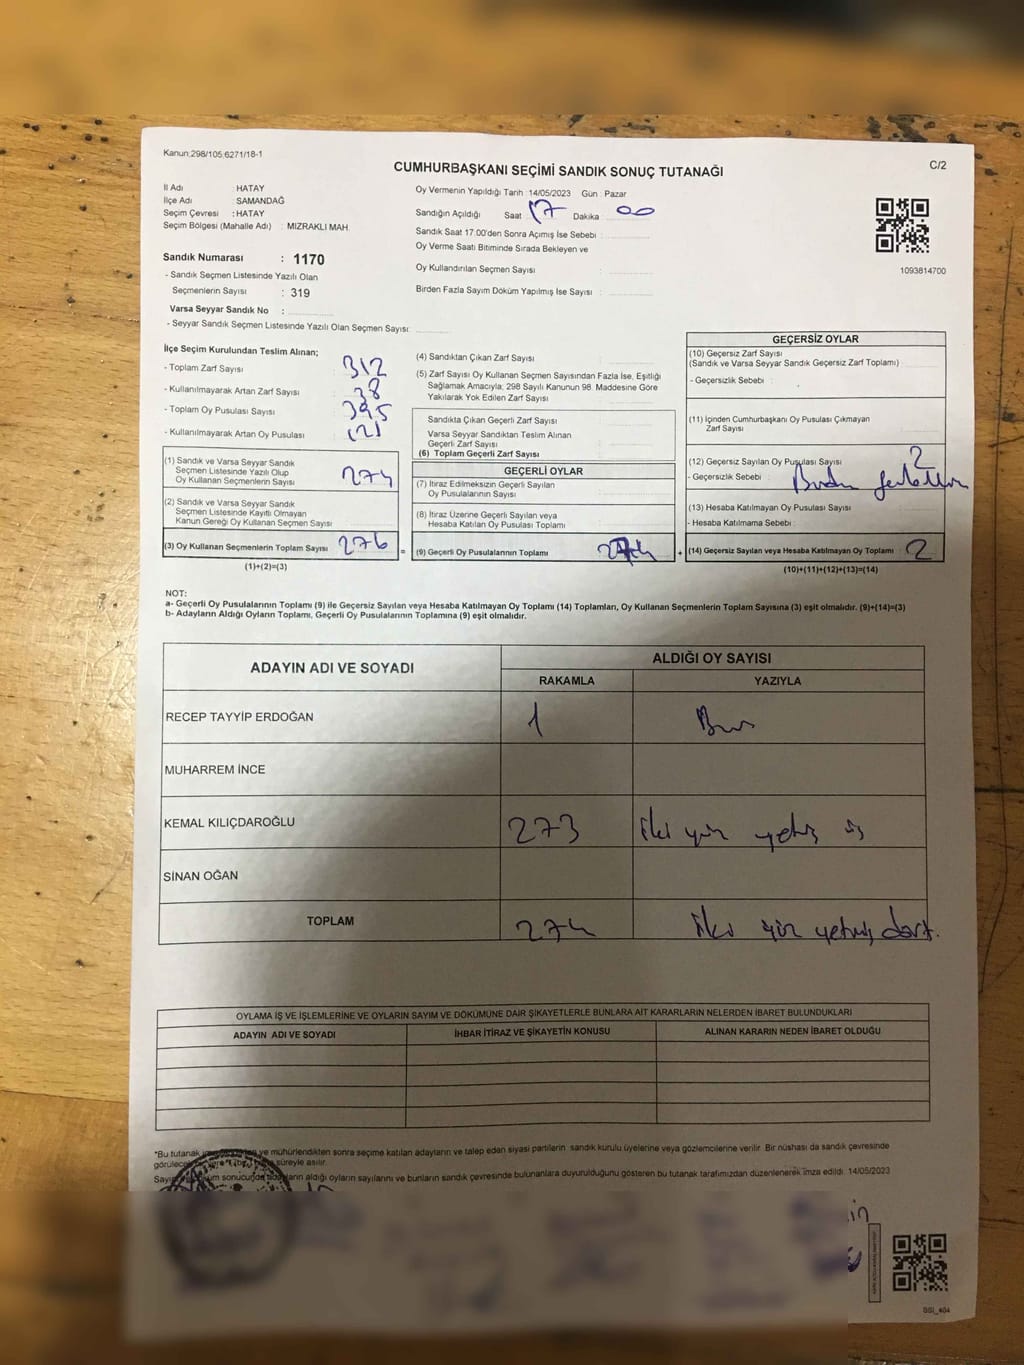 Kanun:298/105.6271/18-1
CUMHURBAŞKANI SEÇİMİ SANDIK SONUÇ TUTANAĞI
C/2
İl Adı : HATAY
İlçe Adı : SAMANDAĞ
Seçim Çevresi : HATAY
Seçim Bölgesi (Mahalle Adı) : MIZRAKLI MAH.
Oy Vermenin Yapıldığı Tarih : 14/05/2023 Gün : Pazar
Sandığın Açıldığı Saat 17 Dakika 00
Sandık Saat 17.00'den Sonra Açımış İse Sebebi :
Oy Verme Saati Bitiminde Sırada Bekleyen ve
Oy Kullandırılan Seçmen Sayısı :
Birden Fazla Sayım Döküm Yapılmış İse Sayısı :
1093814700
Sandık Numarası : 1170
- Sandık Seçmen Listesinde Yazılı Olan
Seçmenlerin Sayısı : 319
Varsa Seyyar Sandık No :
- Seyyar Sandık Seçmen Listesinde Yazılı Olan Seçmen Sayısı:
İlçe Seçim Kurulundan Teslim Alınan;
- Toplam Zarf Sayısı 312
- Kullanılmayarak Artan Zarf Sayısı 38
- Toplam Oy Pusulası Sayısı 395
- Kullanılmayarak Artan Oy Pusulası 121
(1) Sandık ve Varsa Seyyar Sandık
Seçmen Listesinde Yazılı Olup
Oy Kullanan Seçmenlerin Sayısı 274
(2) Sandık ve Varsa Seyyar Sandık
Seçmen Listesinde Kayıtlı Olmayan
Kanun Gereği Oy Kullanan Seçmen Sayısı
(3) Oy Kullanan Seçmenlerin Toplam Sayısı 276 =
(1)+(2)=(3)
(4) Sandıktan Çıkan Zarf Sayısı
(5) Zarf Sayısı Oy Kullanan Seçmen Sayısından Fazla İse, Eşitliği
Sağlamak Amacıyla; 298 Sayılı Kanunun 98. Maddesine Göre
Yakılarak Yok Edilen Zarf Sayısı
Sandıkta Çıkan Geçerli Zarf Sayısı
Varsa Seyyar Sandıktan Teslim Alınan
Geçerli Zarf Sayısı
(6) Toplam Geçerli Zarf Sayısı
GEÇERLİ OYLAR
(7) İtiraz Edilmeksizin Geçerli Sayılan
Oy Pusulalarının Sayısı
(8) İtiraz Üzerine Geçerli Sayılan veya
Hesaba Katılan Oy Pusulası Toplamı
(9) Geçerli Oy Pusulalarının Toplamı 274 +
GEÇERSİZ OYLAR
(10) Geçersiz Zarf Sayısı
(Sandık ve Varsa Seyyar Sandık Geçersiz Zarf Toplamı)
- Geçersizlik Sebebi :
(11) İçinden Cumhurbaşkanı Oy Pusulası Çıkmayan
Zarf Sayısı
(12) Geçersiz Sayılan Oy Pusulası Sayısı 2
- Geçersizlik Sebebi
(13) Hesaba Katılmayan Oy Pusulası Sayısı
- Hesaba Katılmama Sebebi
(14) Geçersiz Sayılan veya Hesaba Katılmayan Oy Toplamı 2
(10)+(11)+(12)+(13)=(14)
NOT:
a- Geçerli Oy Pusulalarının Toplamı (9) ile Geçersiz Sayılan veya Hesaba Katılmayan Oy Toplamı (14) Toplamları, Oy Kullanan Seçmenlerin Toplam Sayısına (3) eşit olmalıdır. (9)+(14)=(3)
b- Adayların Aldığı Oyların Toplamı, Geçerli Oy Pusulalarının Toplamına (9) eşit olmalıdır.
ADAYIN ADI VE SOYADI ALDIĞI OY SAYISI
RAKAMLA YAZIYLA
RECEP TAYYIP ERDOĞAN 1 Bir
MUHARREM İNCE
KEMAL KILIÇDAROĞLU 273 iki yüz yetmiş üç
SİNAN OĞAN
TOPLAM 274 iki yüz yetmiş dört.
OYLAMA İŞ VE İŞLEMLERİNE VE OYLARIN SAYIM VE DÖKÜMÜNE DAİR ŞİKAYETLERLE BUNLARA AİT KARARLARIN NELERDEN İBARET BULUNDUKLARI
ADAYIN ADI VE SOYADI İHBAR İTİRAZ VE ŞİKAYETİN KONUSU ALINAN KARARIN NEDEN İBARET OLDUĞU
*Bu tutanak ve mühürlendikten sonra seçime katılan adayların ve talep edan siyasi partilerin sandık kurulu üyelerine veya gözlemcilerine verilir. Bir nüshası da sandık çevresinde
süreyle asılır.
sonucunda aldığı oyların sayılarını ve bunların sandık çevresinde bulunanlara duyurulduğunu gösteren bu tutanak tarafımızdan düzenlenerek imza edildi. 14/05/2023
SSI_404